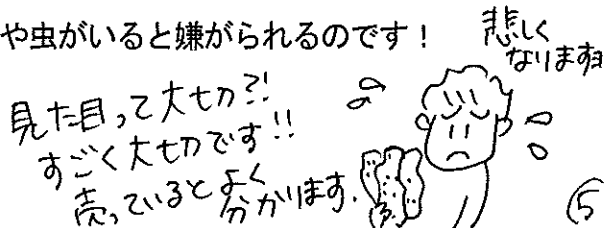 や虫がいると嫌がられるのです！
悲しく
なりますヨ
見た目って大切?!
すごく大切です!!
売っているとよく
分かります.
⑤